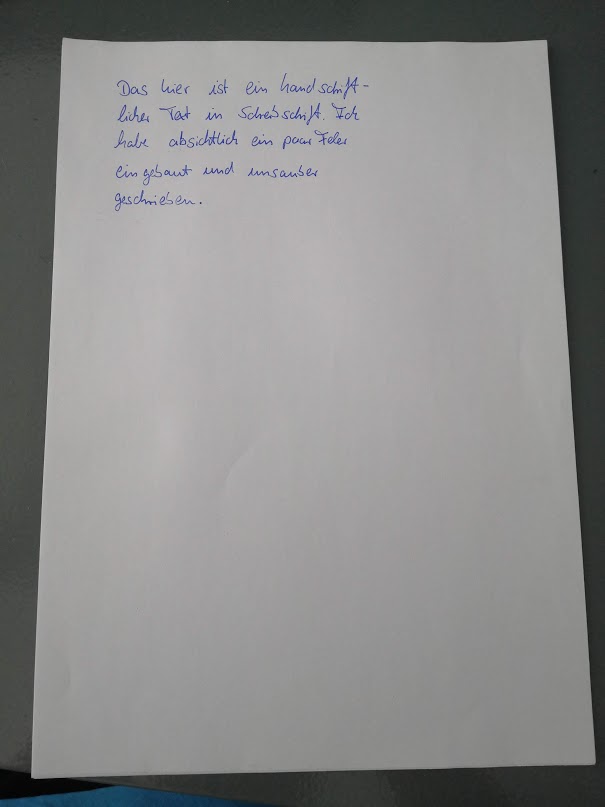 Das hier ist ein handschrift-
licher Text in Schreibschrift. Ich
habe absichtlich ein paar Feler
eingebaut und unsauber
geschrieben.